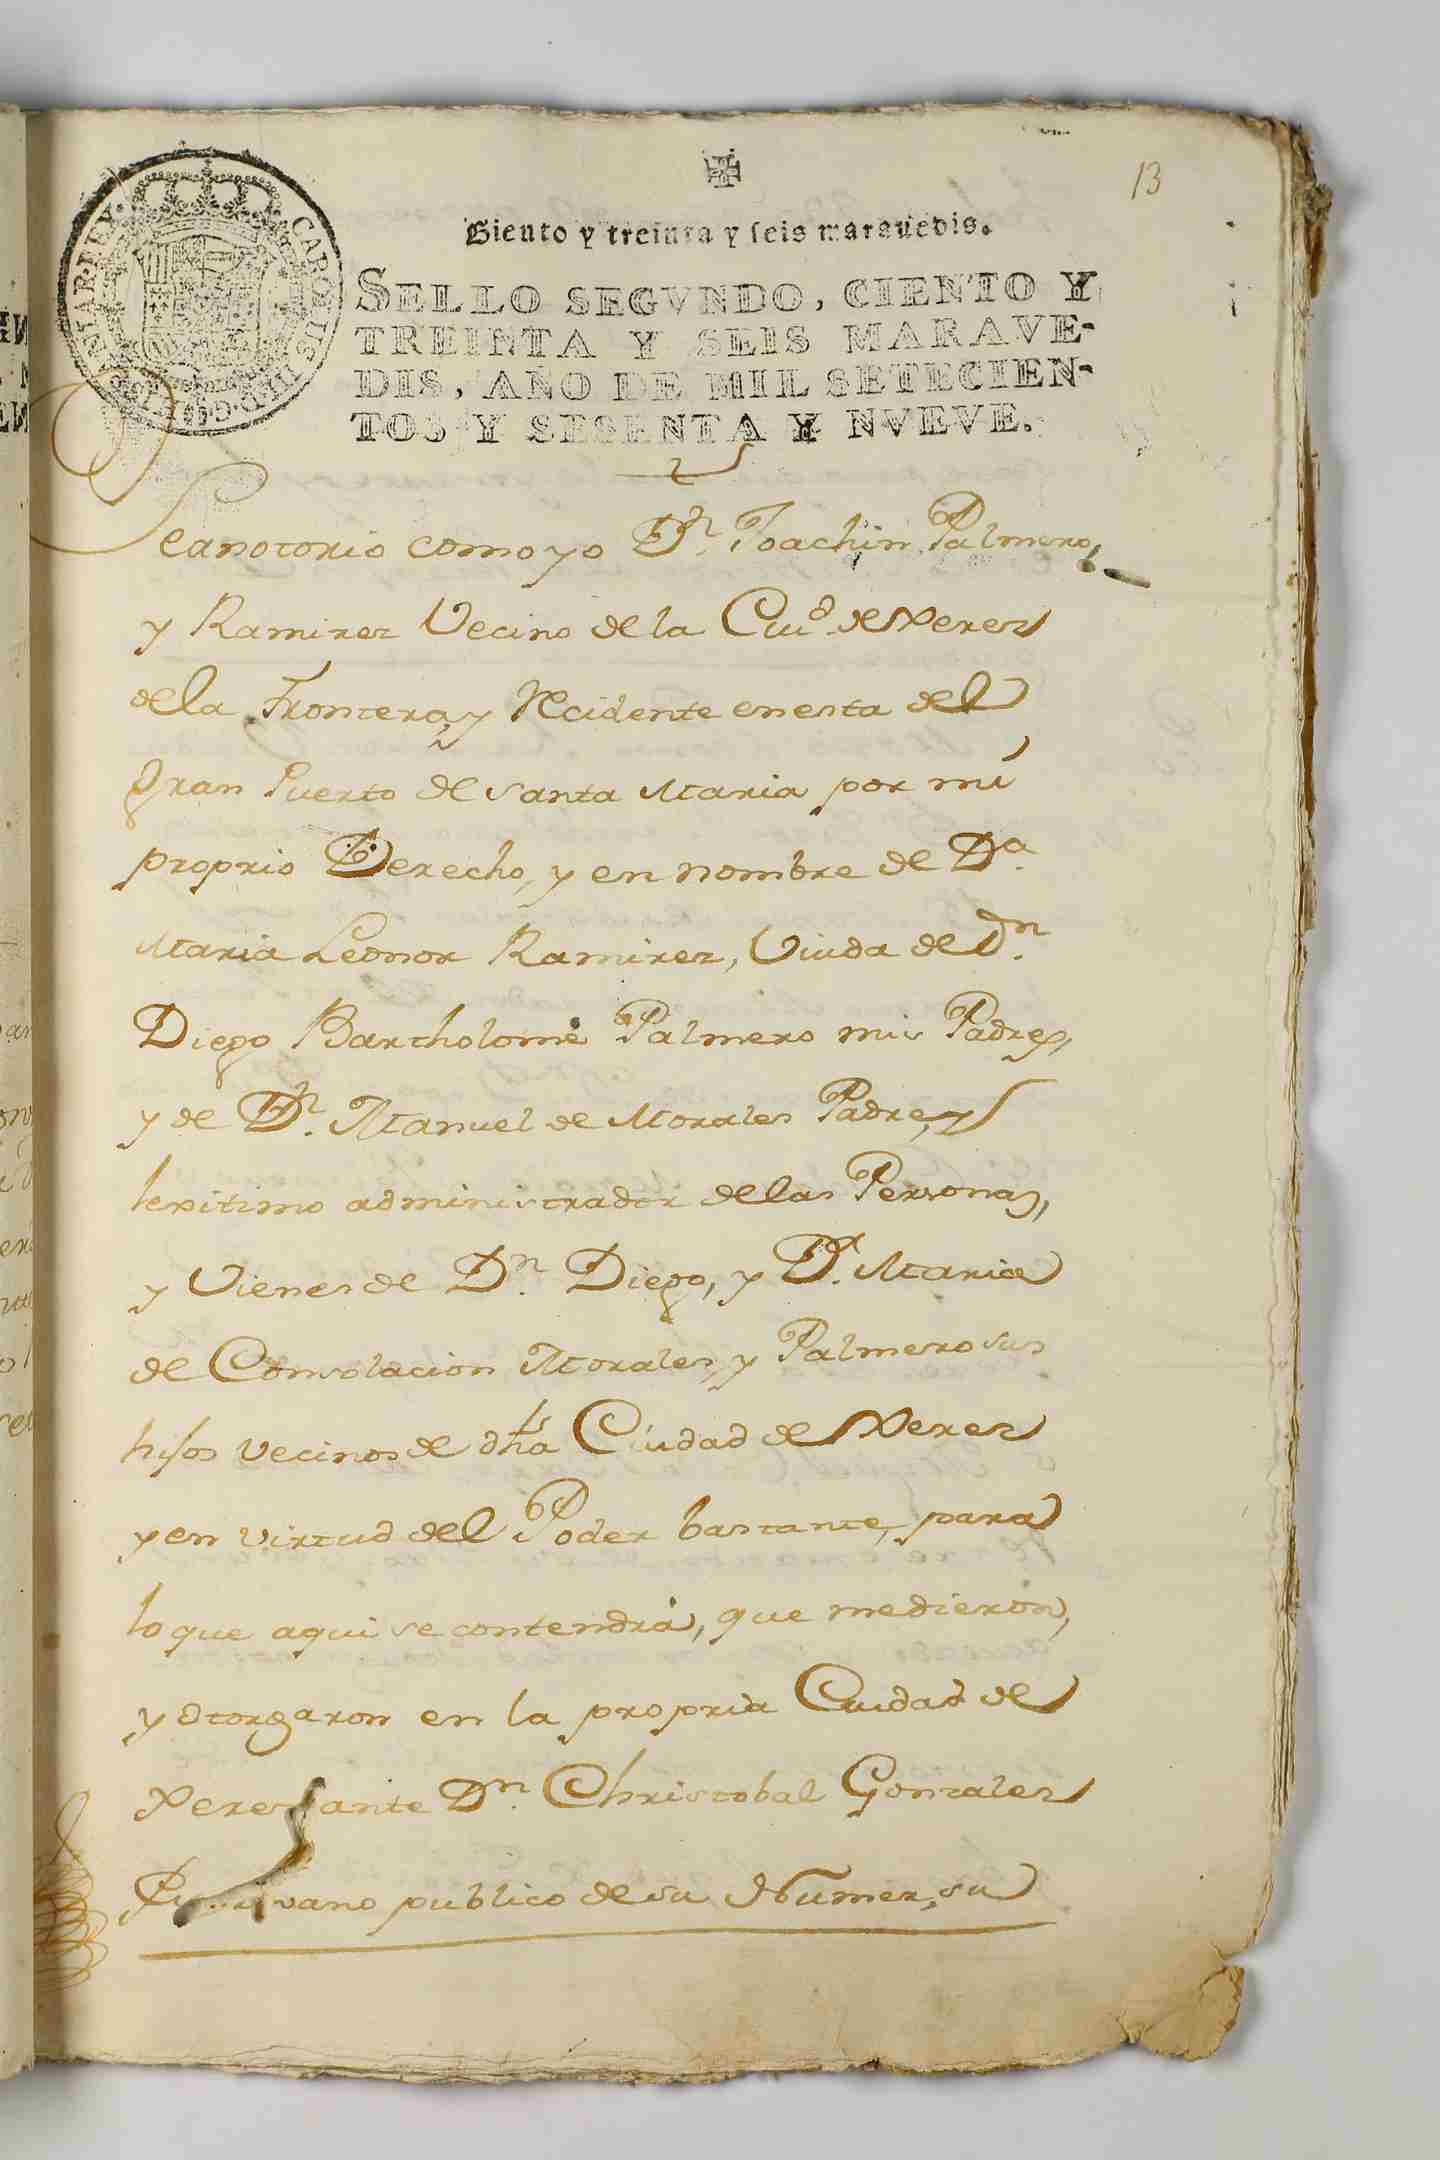 13
Ciento y treinta y seis maravedis.
SELLO SEGVNDO, CIENTO Y
TREINTA Y SEIS MARAVE-
DIS, AÑO DE MIL SETECIEN-
TOS Y SESENTA Y NVEVE.
CAROLUS III D G HISPANIAR REX
Seanotorio como yo Dn. Joachin Palmero,
y Ramirez Vecino de la Ciud. de Xerez
de la Frontera, y Recidente en esta del
Gran Puerto de Santa Maria por mi
proprio Derecho, y en nombre de Da.
Maria Leonor Ramirez, Viuda de Dn.
Diego Bartholome Palmero mis Padres,
y de Dn. Manuel de Morales Padre, y
lexitimo administrador de las Personas,
y Vienes de Dn. Diego, y Da. Maria
de Consolacion Morales, y Palmero sus
hijos vecinos de dha Ciudad de Xerez
y en virtud del Poder bastante, para
lo que aqui se contendrá, que me dieron,
y otorgaron en la propria Ciudad de
Xerez ante Dn. Christobal Gonzales
Escrivano publico de su Numer, su